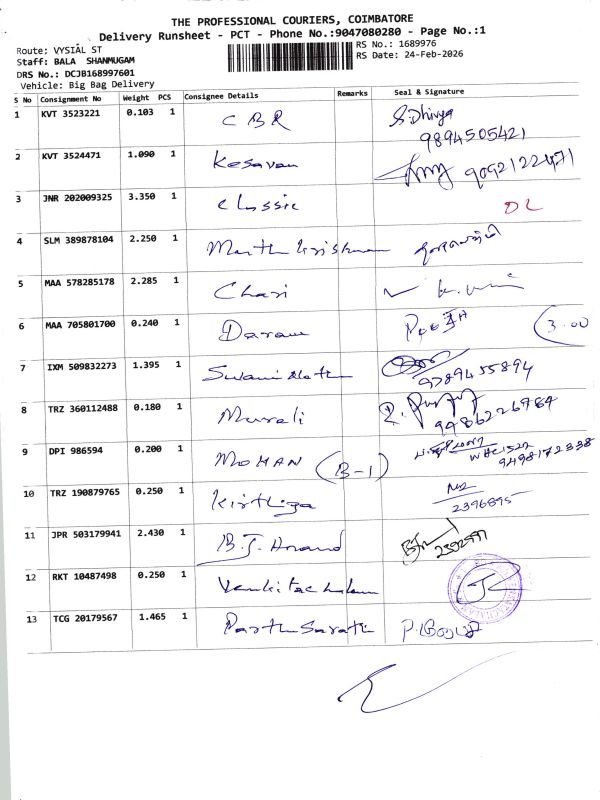 THE PROFESSIONAL COURIERS, COIMBATORE
Delivery Runsheet - PCT - Phone No.:9047080280 - Page No.:1
Route: VYSIAL ST
RS No.: 1689976
Staff: BALA SHANMUGAM
RS Date: 24-Feb-2026
DRS No.: DCJB168997601
Vehicle: Big Bag Delivery
S No Consignment No Weight PCS Consignee Details Remarks Seal & Signature
1 KVT 3523221 0.103 1 CBR S. Dhivya
9894505421
2 KVT 3524471 1.090 1 Kesavan 9092122471
3 JNR 202009325 3.350 1 Classic DL
4 SLM 389878104 2.250 1
5 MAA 578285178 2.285 1 Chari
6 MAA 705801700 0.240 1 3.00
7 IXM 509832273 1.395 1 Swami
9789455894
8 TRZ 360112488 0.180 1 Murali
9486226784
9 DPI 986594 0.200 1 MOHAN (B-1)
9498172338
10 TRZ 190879765 0.250 1
2396895
11 JPR 503179941 2.430 1 B.J. Anand
2392971
12 RKT 10487498 0.250 1
13 TCG 20179567 1.465 1 Parthasarathi